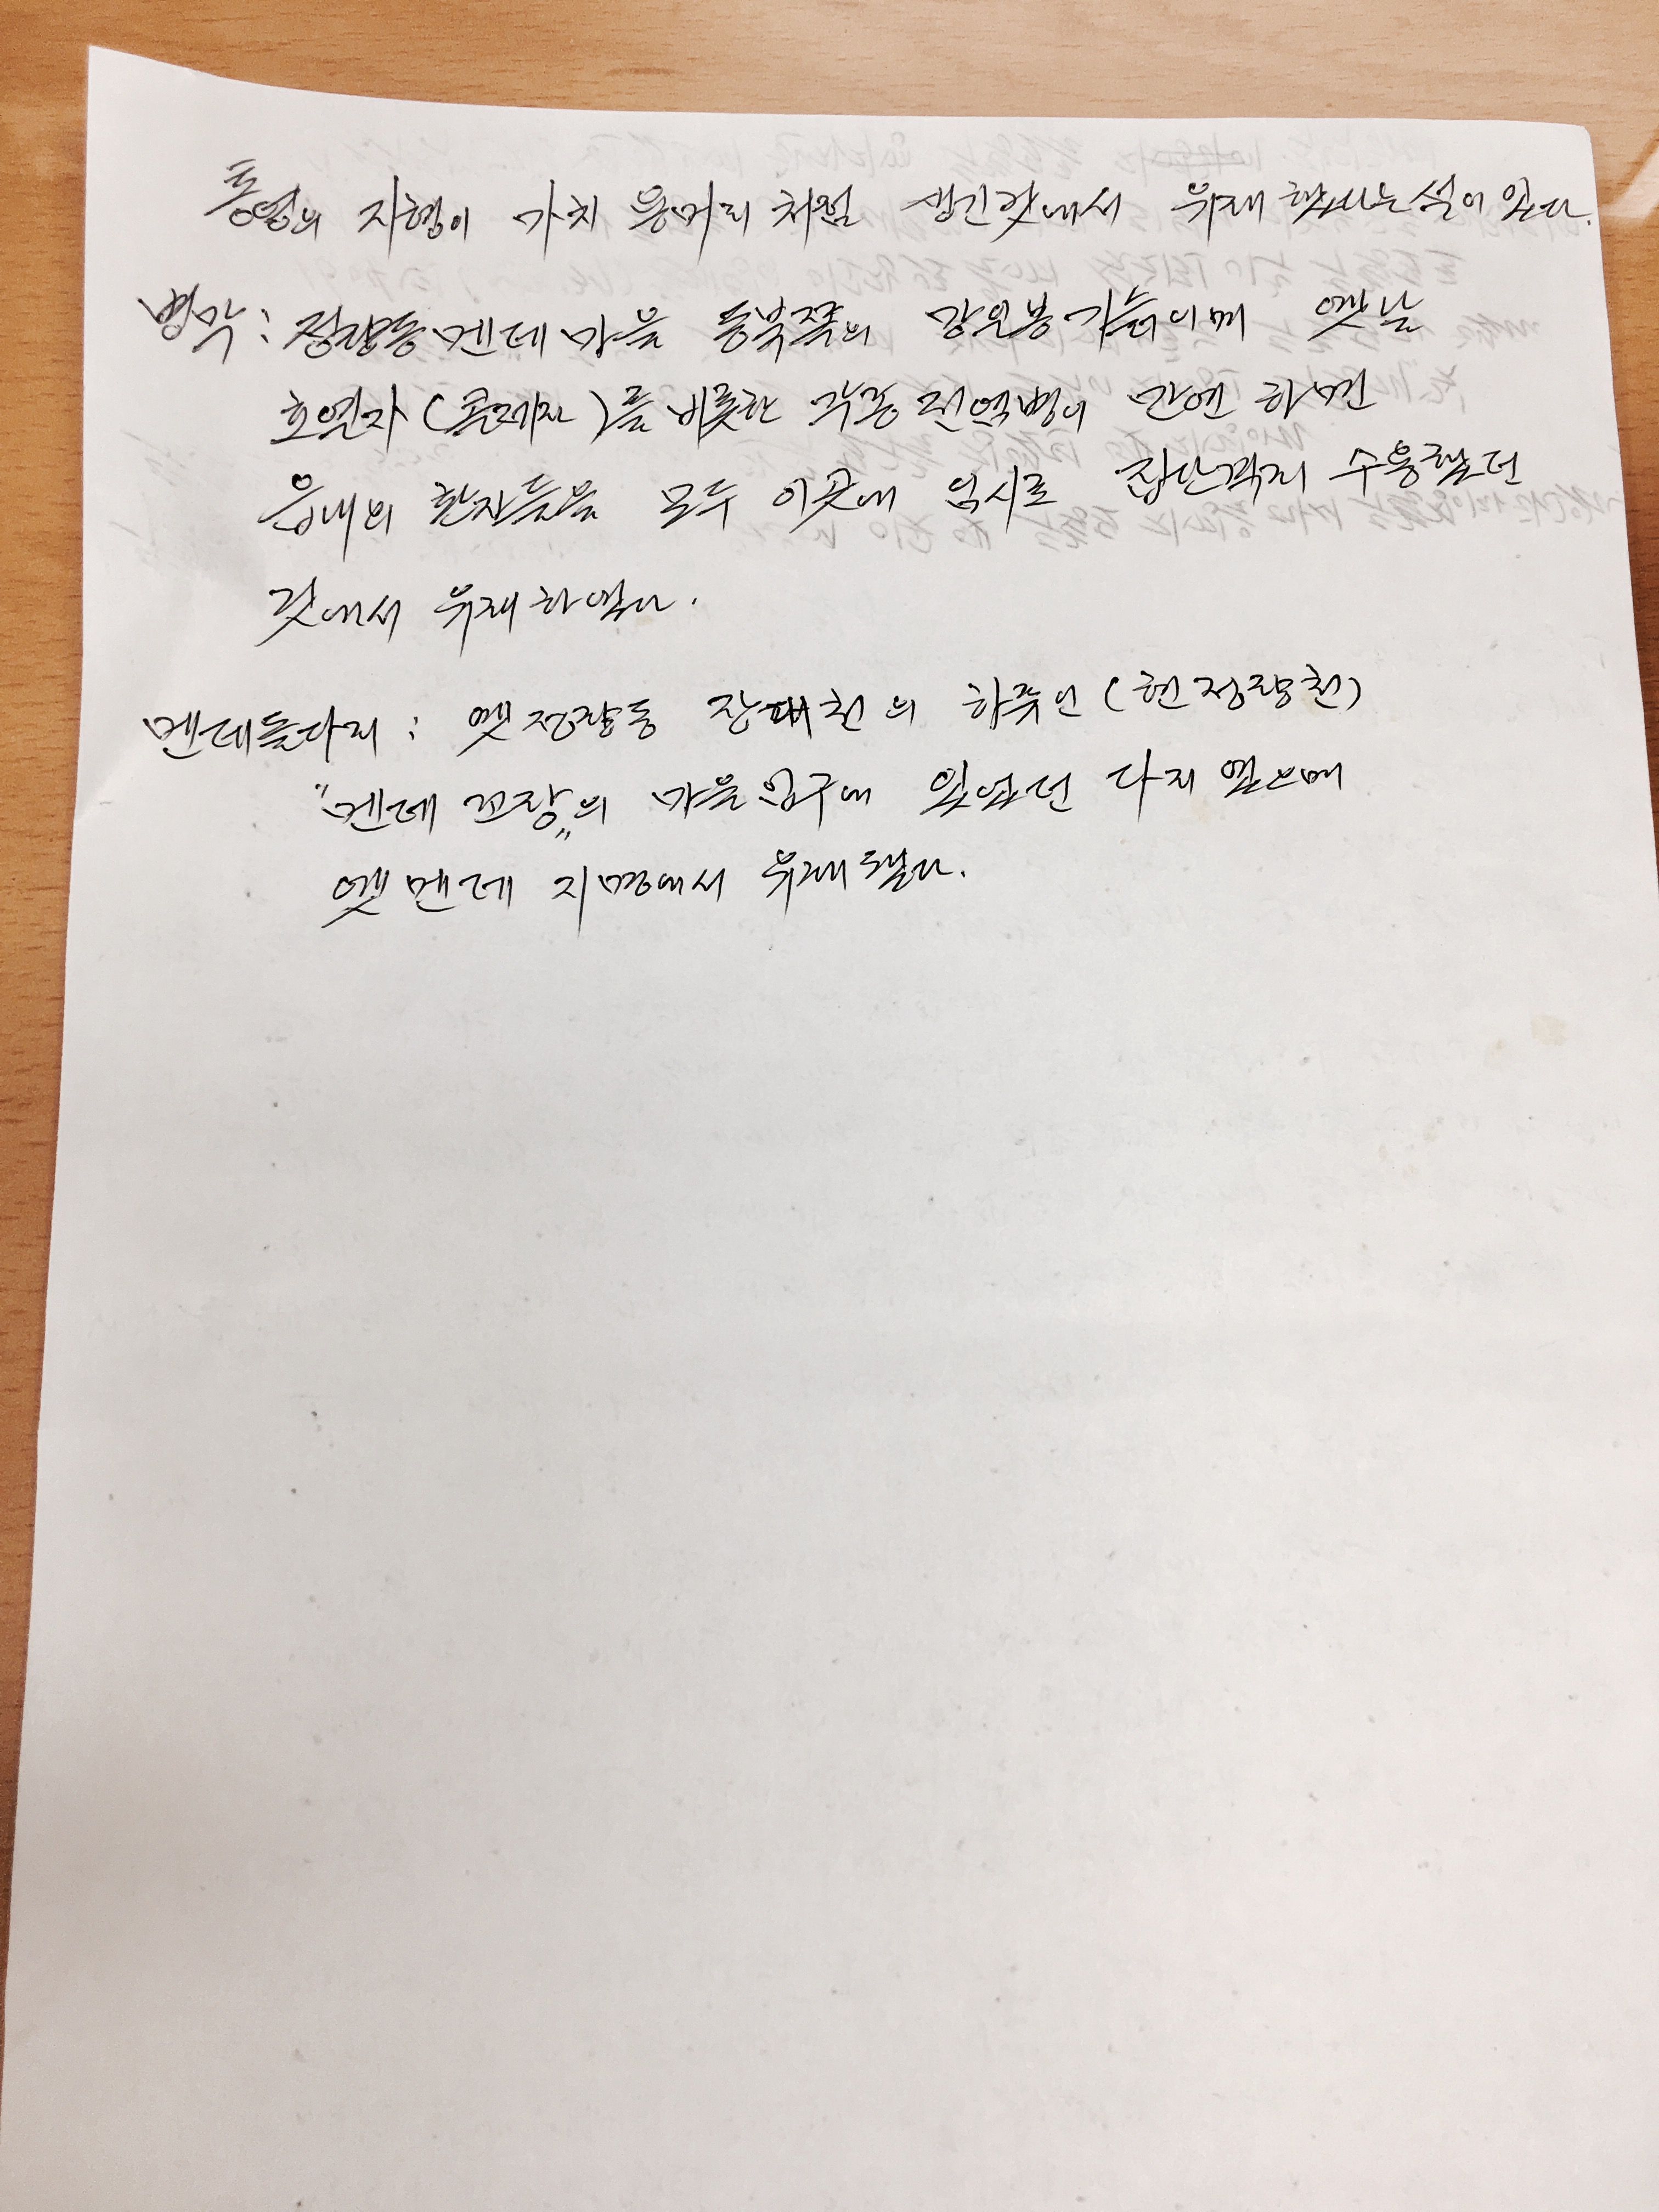 통영의 지형이 마치 용머리 처럼 생긴것에서 유래 했다는 설이 있다.
병막 : 정량동 멘데 마을 동북쪽의 망일봉 기슭이며 옛날
호열자 (콜레라)를 비롯한 각종 전염병이 만연 하면
읍내의 환자들을 모두 이곳에 임시로 집단격리 수용했던
것에서 유래 하였다.
멘데돌다리 : 옛 정량동 장대천의 하류인 (현 정량천)
"멘데 꼬랑"의 마을입구에 있었던 다리 였으며
옛 멘데 지명에서 유래 됐다.